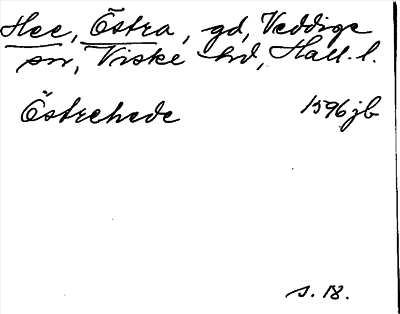 Hee, Östra, gd, Veddige
sn, Viske hd, Hall. l.
Östrehede 1596 jb
s. 18.